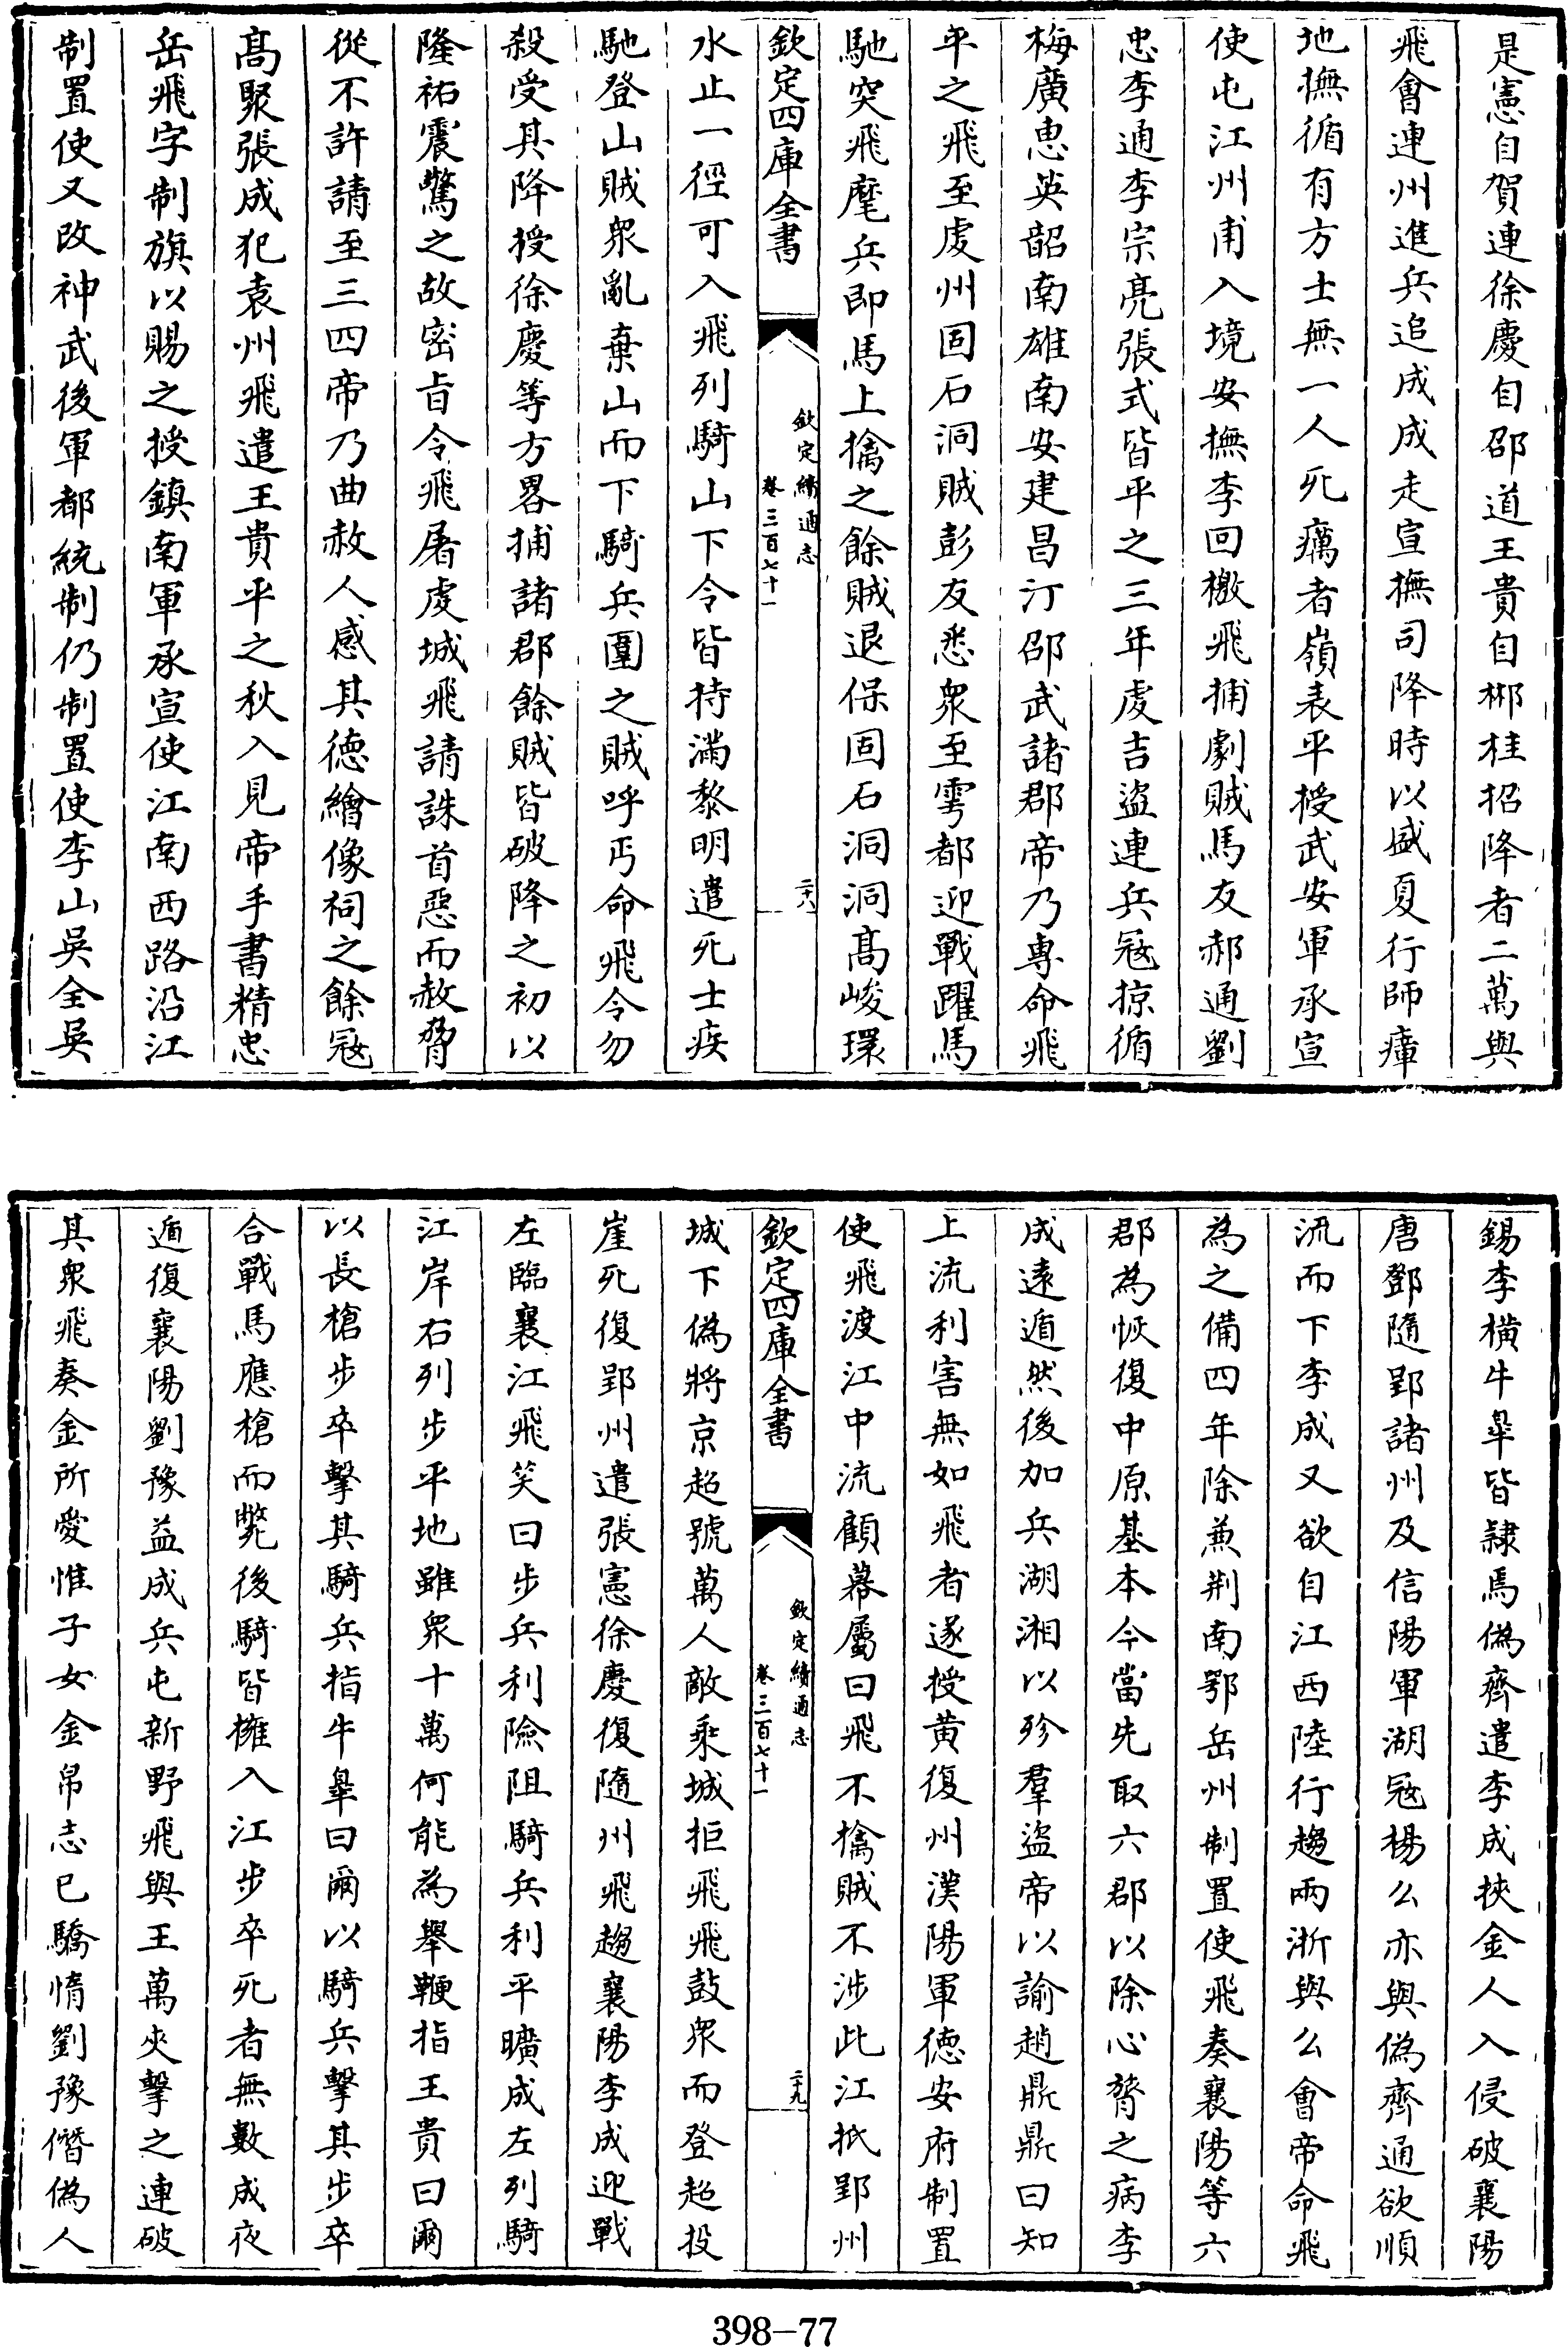 是憲自賀連徐慶自邵道王貴自郴桂招降者二萬與
飛會連州進兵追成成走宣撫司降時以盛夏行師瘴
地撫循有方士無一人死癘者嶺表平授武安軍承宣
使屯江州甫入境安撫李回檄飛捕劇賊馬友郝通劉
忠李通李宗亮張式皆平之三年虔吉盜連兵冦掠循
梅廣惠英韶南雄南安建昌汀邵武諸郡帝乃專命飛
平之飛至虔州固石洞賊彭友悉衆至雩都迎戰躍馬
馳突飛麾兵即馬上擒之餘賊退保固石洞洞髙峻環
欽定四庫全書
欽定續通志
卷三百七十一
二十八
水止一徑可入飛列騎山下令皆持滿黎明遣死士疾
馳登山賊衆亂棄山而下騎兵圍之賊呼丐命飛令勿
殺受其降授徐慶等方畧捕諸郡餘賊皆破降之初以
隆祐震驚之故密㫖令飛屠虔城飛請誅首惡而赦脅
從不許請至三四帝乃曲赦人感其德繪像祠之餘冦
髙聚張成犯袁州飛遣王貴平之秋入見帝手書精忠
岳飛字制旗以賜之授鎮南軍承宣使江南西路沿江
制置使又改神武後軍都統制仍制置使李山吳全吳
錫李橫牛臯皆隷焉偽齊遣李成挾金人入侵破襄陽
唐鄧隨郢諸州及信陽軍湖冦楊么亦與偽齊通欲順
流而下李成又欲自江西陸行趨兩浙與么會帝命飛
為之備四年除兼荆南鄂岳州制置使飛奏襄陽等六
郡為恢復中原基本今當先取六郡以除心膂之病李
成遠遁然後加兵湖湘以殄羣盜帝以諭趙鼎鼎曰知
上流利害無如飛者遂授黄復州漢陽軍德安府制置
使飛渡江中流顧幕屬曰飛不擒賊不涉此江抵郢州
欽定四庫全書
欽定續通志
卷三百七十一
二十九
城下偽將京超號萬人敵乘城拒飛飛鼓衆而登超投
崖死復郢州遣張憲徐慶復隨州飛趨襄陽李成迎戰
左臨襄江飛笑曰步兵利險阻騎兵利平曠成左列騎
江岸右列步平地雖衆十萬何能為舉鞭指王貴曰爾
以長槍步卒擊其騎兵指牛臯曰爾以騎兵擊其步卒
合戰馬應槍而斃後騎皆擁入江步卒死者無數成夜
遁復襄陽劉豫益成兵屯新野飛與王萬夾擊之連破
其衆飛奏金所愛惟子女金帛志已驕惰劉豫僭偽人
398-77